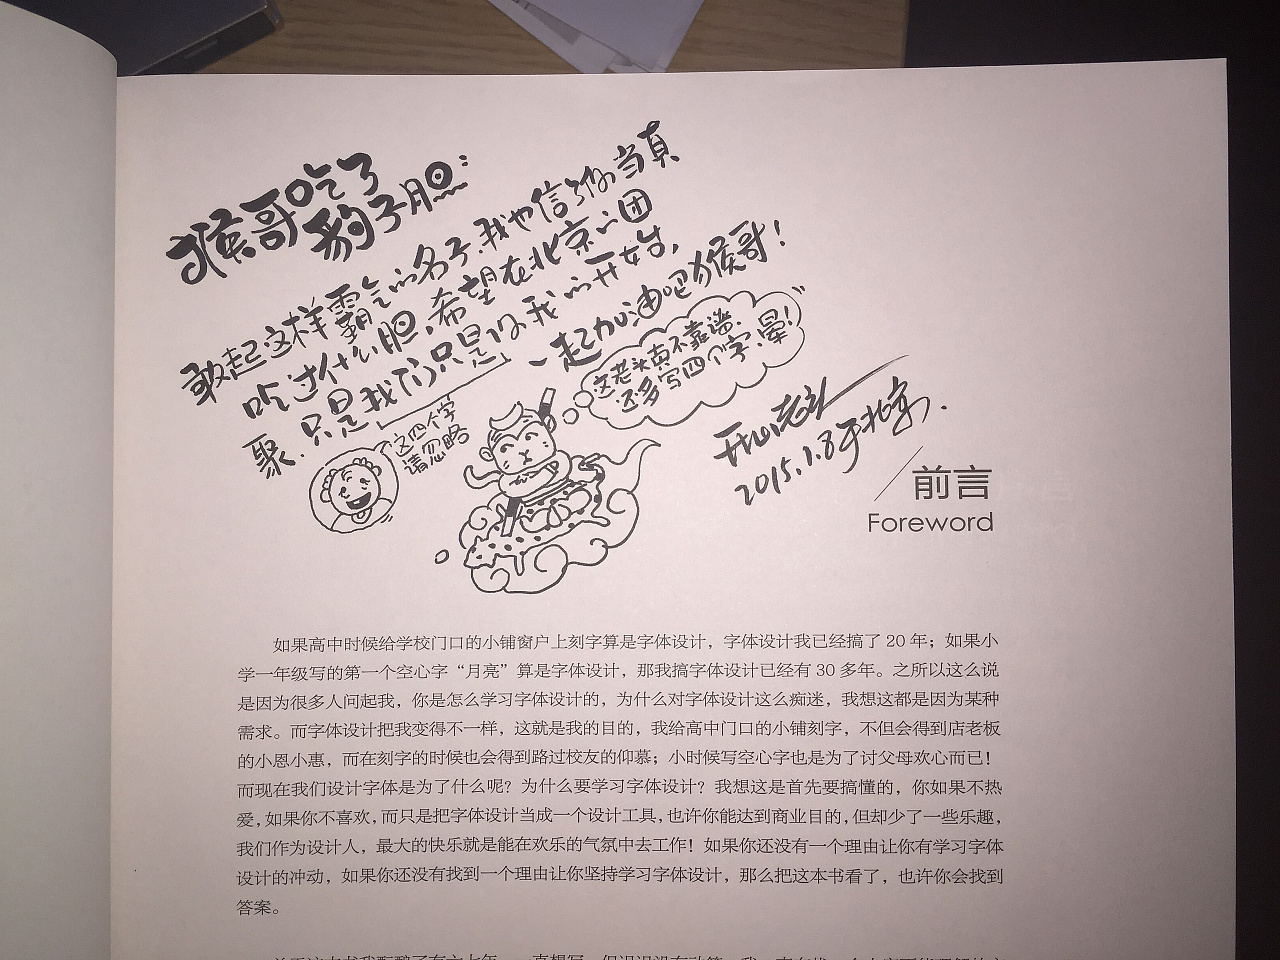 猴哥吃了
豹子胆:
敢起这样霸气的名字.我也信了你当真
吃过什么胆,希望在北京小团
聚.只是我们只是你我的开始,
一起加油吧猴哥!
这四个字
请忽略
这老头真不靠谱.
还多写四个字,晕!
2015.1.8于北京.
前言
Foreword
如果高中时候给学校门口的小铺窗户上刻字算是字体设计，字体设计我已经搞了 20 年；如果小
学一年级写的第一个空心字“月亮”算是字体设计，那我搞字体设计已经有 30 多年。之所以这么说
是因为很多人问起我，你是怎么学习字体设计的，为什么对字体设计这么痴迷，我想这都是因为某种
需求。而字体设计把我变得不一样，这就是我的目的，我给高中门口的小铺刻字，不但会得到店老板
的小恩小惠，而在刻字的时候也会得到路过校友的仰慕；小时候写空心字也是为了讨父母欢心而已！
而现在我们设计字体是为了什么呢？为什么要学习字体设计？我想这是首先要搞懂的，你如果不热
爱，如果你不喜欢，而只是把字体设计当成一个设计工具，也许你能达到商业目的，但却少了一些乐趣，
我们作为设计人，最大的快乐就是能在欢乐的气氛中去工作！如果你还没有一个理由让你有学习字体
设计的冲动，如果你还没有找到一个理由让你坚持学习字体设计，那么把这本书看了，也许你会找到
答案。